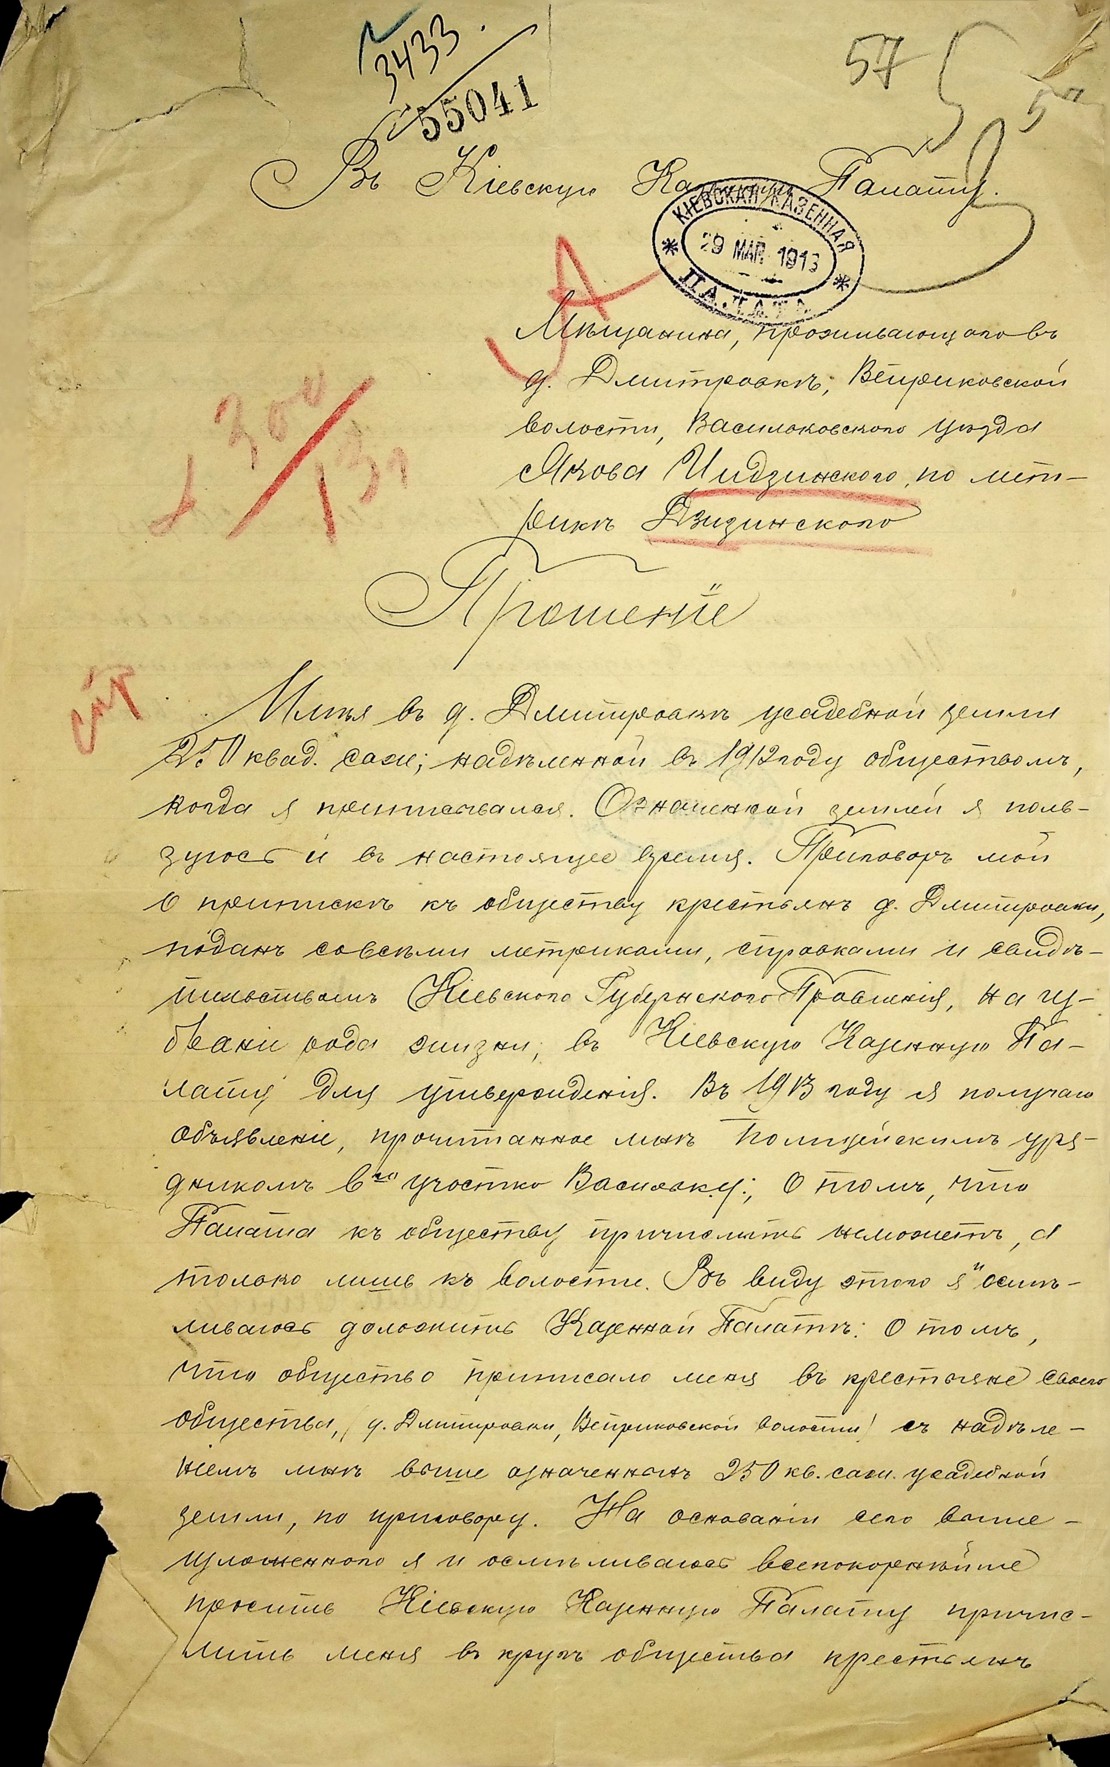 3433.
55041
57
57
Въ Кіевскую Казенную Палату.
КІЕВСКАЯ КАЗЕННАЯ
29 МАР 1913
ПАЛАТА
Мѣщанина, проживающаго въ
д. Дмитровкѣ, Веприковской
волости, Васильковскаго уѣзда
Якова Чидзинскаго, по мет-
рикѣ Дзидзинскаго
300
131
Прошеніе
стр
Имѣя въ д. Дмитровкѣ усадебной земли
250 квад. саж; надѣленной въ 1912 году обществомъ,
когда я приписывался. Означенной землей я поль-
зуюсь и въ настоящее время. Приговоръ мой
о припискѣ къ обществу крестьянъ д. Дмитровки,
поданъ совсѣми метриками, справками и свидѣ-
тельствомъ Кіевскаго Губернскаго Правленія, на из-
браніе рода жизни, въ Кіевскую Казенную Па-
лату для утвержденія. Въ 1913 году я получаю
объявленіе, прочитанное мнѣ Полицейскимъ уря-
дникомъ 6го участка Васильк.у:, о томъ, что
Палата къ обществу причислить неможетъ, а
только лишь къ волости. Въ виду этого я осмѣ-
ливаюсь доложить Казенной Палатѣ: О томъ,
что общество приписало меня въ крестьяне своего
общества, / д. Дмитровки, Веприковской волости / съ надѣле-
ніемъ мнѣ выше означенныхъ 250 кв. саж. усадебной
земли, по приговору. На основаніи сего выше-
изложеннаго я и осмѣливаюсь всепокорнѣйше
просить Кіевскую Казенную Палату причис-
лить меня въ кругъ общества крестьянъ